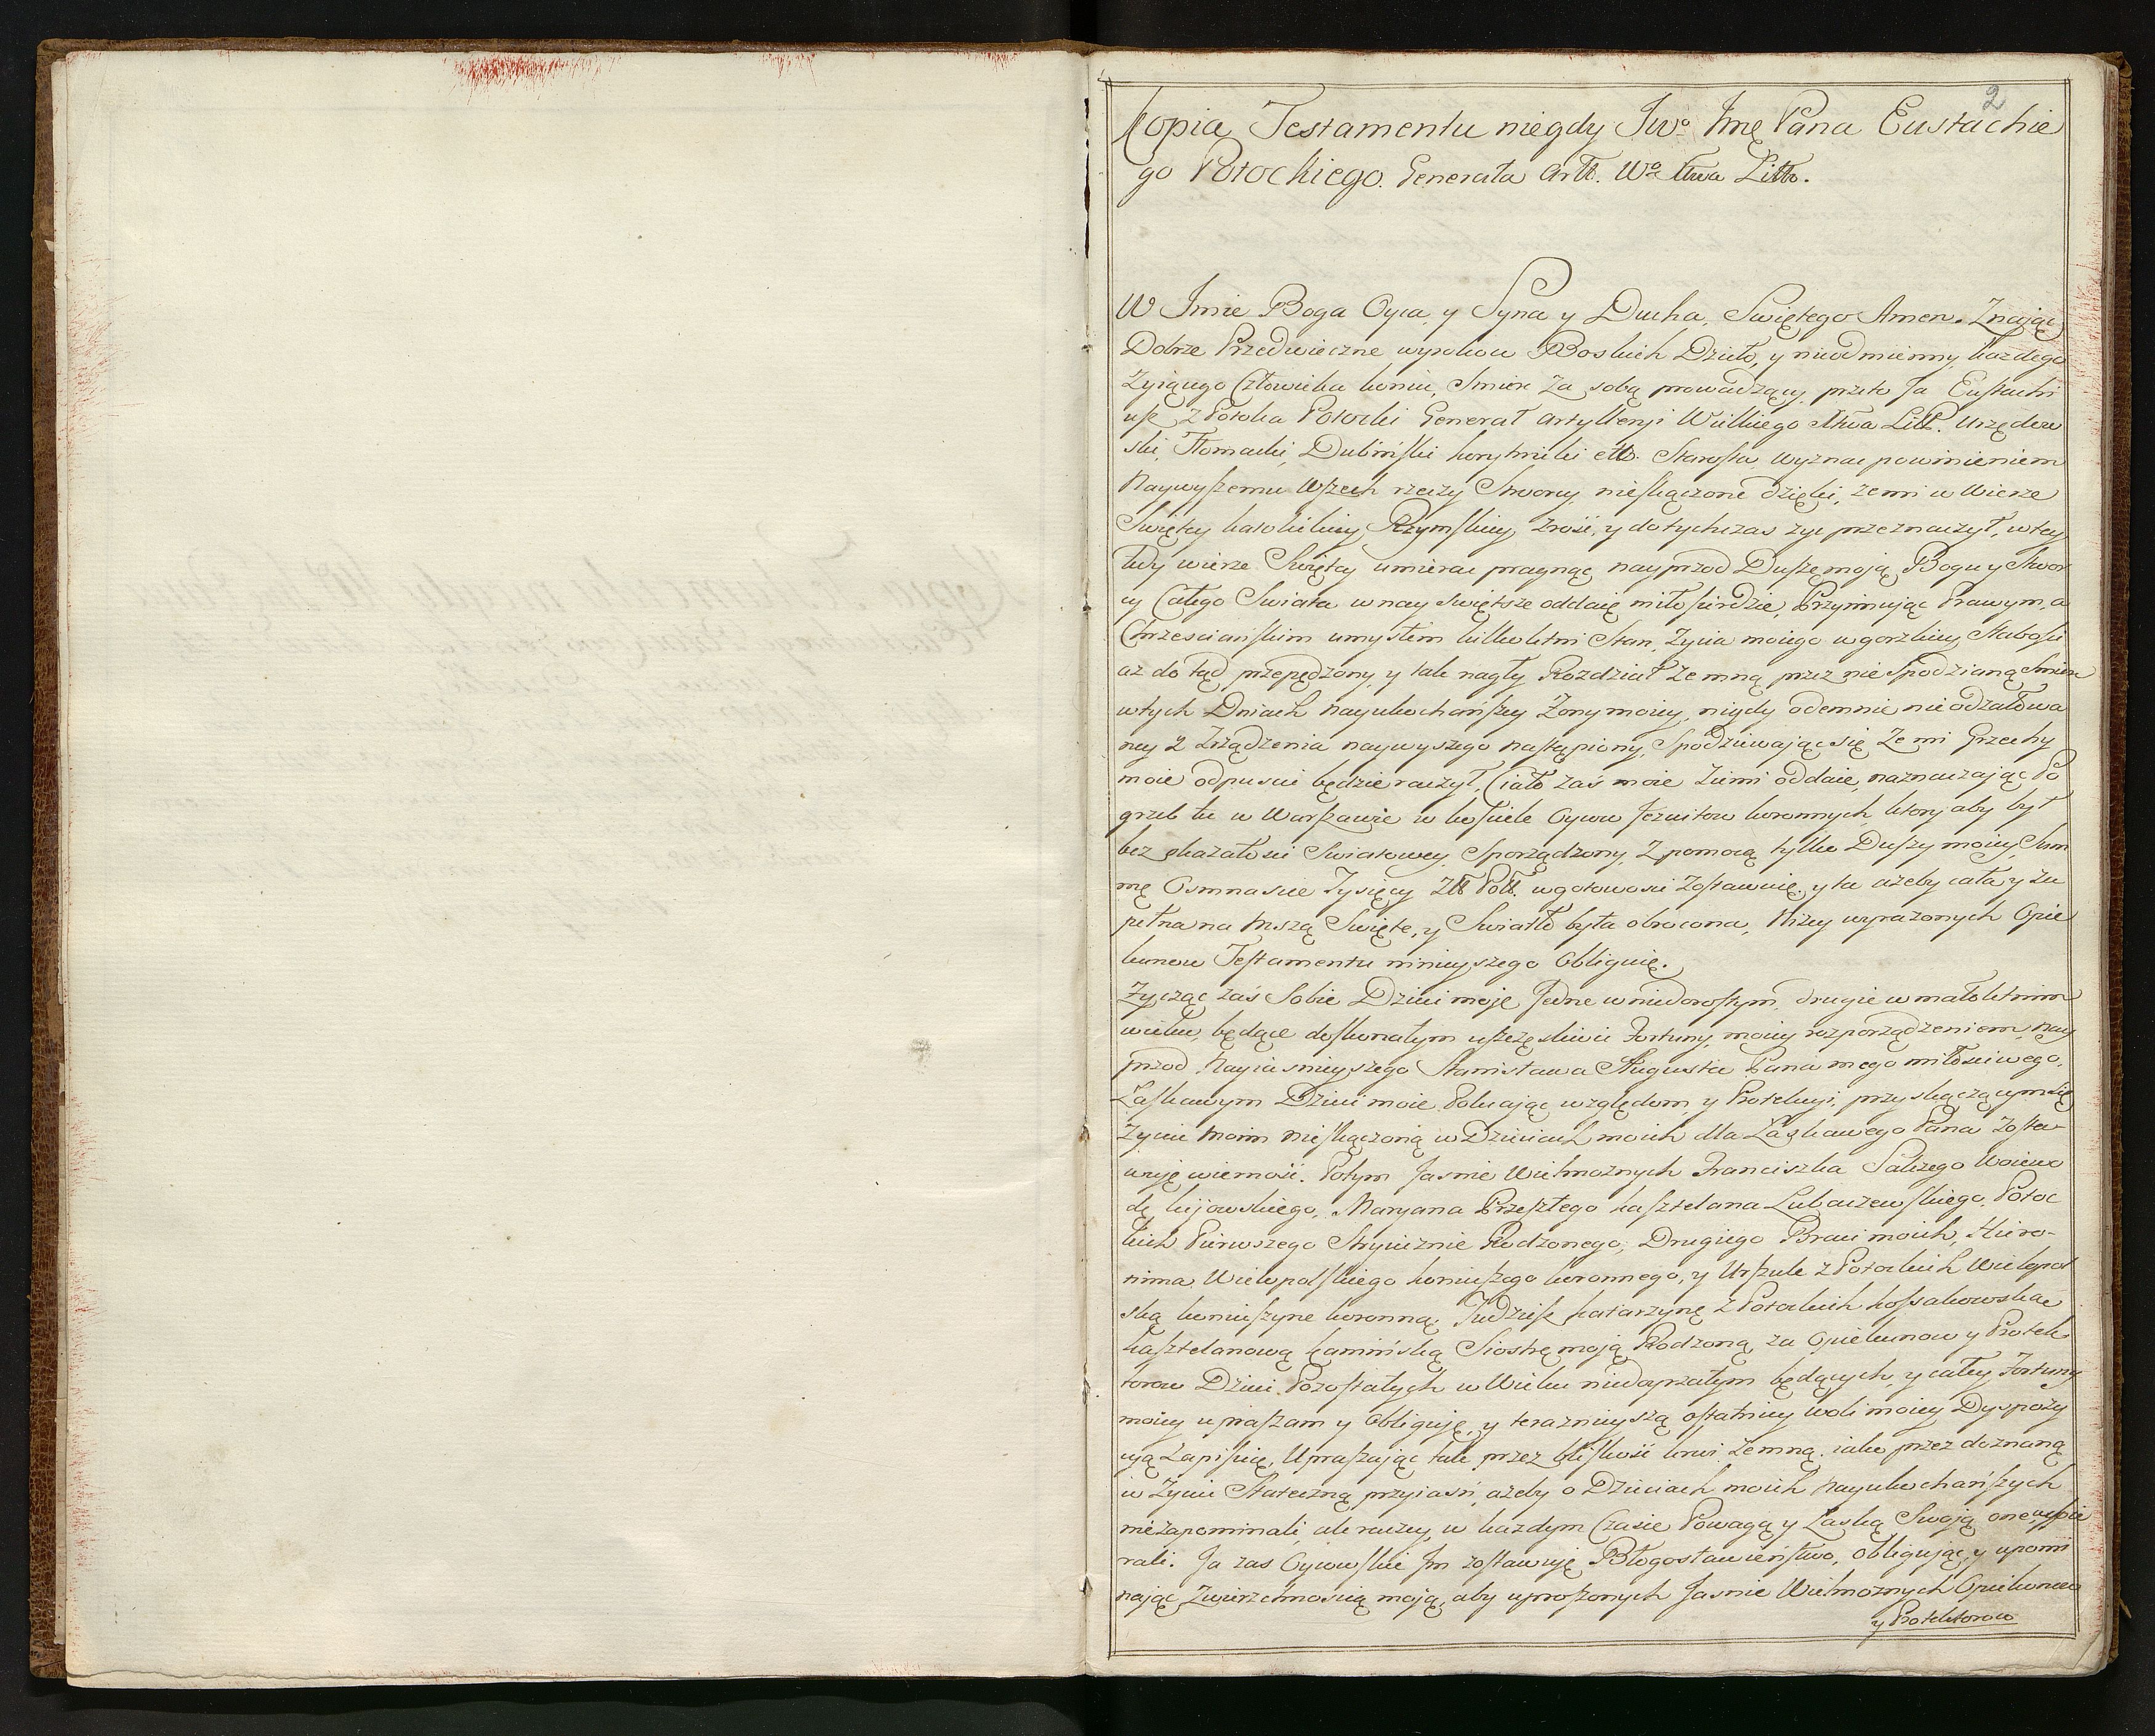 2
Kopia Testamentu niegdy Jwo Jmę Pana Eustachie
go Potockiego. Generała Artt. Wo Xtwa Litto.
W Imie Boga Oyca, y Syna y Ducha, Swiętego Amen. Znając
Dobrze Przedwieczne wyrokow Boskich Dzieło, y nieodmienny każdego
Zyiącego Człowieka koniec, Smierc za sobą prowadzący, przeto Ja Eustachi
usz z Potoka Potocki Generał Artylleryi Wielkiego Xtwa Litt. Urzędow
ski, Tłomacki, Dubiński korytnicki ett. Starosta, wyznac powinieniem
Naywyszemu Wszech rzeczy Stworcy, nieskączone dzięki, ze mi w Wierze
Swiętey katolickiey Rzymskiey zrość, y dotychczas zyc przeznaczył, w tey
tedy wierze Swiętey umierac pragnąc nayprzod Duszę moją Bogu y Stwor
cy Całego Swiata w nay swiętsze oddaię miłosierdzie, Przyimując Prawym, a
Chrzesciańskim umysłem kilkoletni Stan, Zycia moiego w gorzkiey Słabosci
az do tąd przepędzony, y tak nagły Rozdział ze mną przez nie Spodzianą Smierc
w tych Dniach nayukochańszey Zony moiey, nigdy odemnie nieodzałowa
ney z Zrządzenia naywyszego nastąpiony, Spodziewając się Ze mi Grzechy
moie odpuscic będzie raczył, Ciało zaś moie Ziemi oddaie, naznaczając Po
grzeb tu w Warszawie w kosciele Oycow Jezuitow koronnych, ktory aby był
bez okazałosci Swiatowey, Sporządzony, Z pomocą tylko Duszy moiey, Sum
mę Osmnascie Tysięcy Złł Poll. w gotowosci Zostawuię, y ta azeby cała y zu
pełna na Mszą Swięte, y Swiatło była obrocona, Nizey wyrazonych Opie
kunow Testamentu ninieyszego Obliguię.
Zycząc zaś Sobie Dzieci moje Jedne w niedorosłym, drugie w małoletnim
wieku, będące doskonałym uszczęsliwic Fortuny, moiey rozporządzeniem, nay
przod Nayiasnieyszego Stanisława Augusta Pana mego miłosciwego,
Łaskawym Dzieci moie Polecając względom, y Protekcyi, przy skączącym się
Zyciu Moim nieskączoną w Dzieciach moich dla Łaskawego Pana Zosta-
wuię wierność. Potym Jasnie Wielmoznych Franciszka Salezego Woiewo
dę kijowskiego, Maryana Przeszłego kasztelana Lubaczewskiego, Potoc
kich Pierwszego Stryiecznie Rodzonego, Drugiego Braci moich, Hiero-
nima Wielopolskiego koniuszego koronnego, y Urszule z Potockich Wielopol
ską koniuszyne koronną, Tudziesz katarzynę z Potockich kossakowską
kasztelanową kamińską Siostrę moją Rodzoną, za Opiekunow y Protek
torow Dzieci Pozostałych w Wieku niedoyrzałym będących, y całey Fortuny
moiey upraszam y Obliguię, y teraznieyszą ostatniey woli moiey Dyspozy
cyą Zapisuię, Upraszając tak przez bliskość krwi ze mną, iako przez doznaną
w Zyciu Stateczną przyiasn, azeby o Dzieciach moich Nayukochańszych
niezapominali, ale raczey, w kazdym Czasie Powagą y Łaską Swoją one wspie
rali. Ja zas Oycowskie Im zostawuję Błogosławieństwo, obligując, y upomi
nając Zwierzchnoscią moją, aby uproszonych Jasnie Wielmoznych Opiekunow
y Protektorow